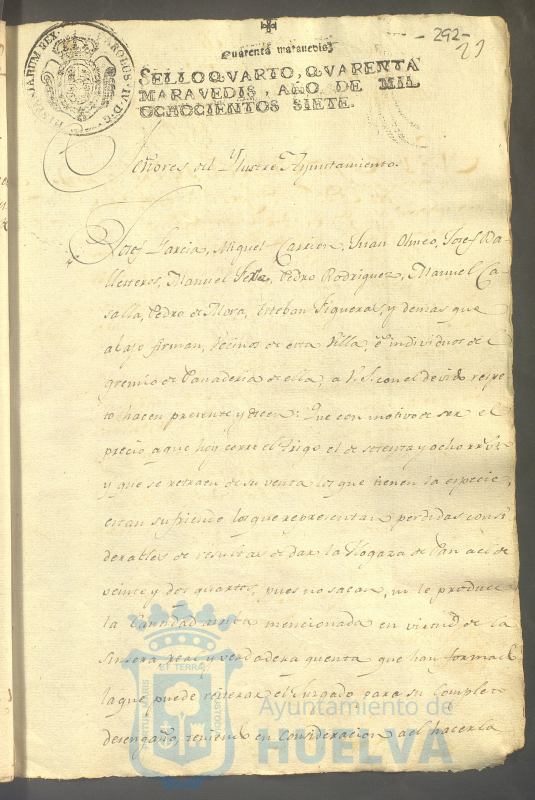 -292-
Quarenta maravedis.
SELLO QVARTO, QVARENTA
MARAVEDIS, AÑO DE MIL
OCHOCIENTOS SIETE.
CAROLUS IV D G HISPANIARUM REX
Señores del Ylustre Ayuntamiento.
Josef Garcia, Miguel Carrion, Juan Olmeo, Josef Ba-
llesteros, Manuel Pedro Rodriguez, Manuel Ca-
salla, Pedro de Mora, Esteban Figueras, y demas que
abajo firman, vecinos de esta Villa, e individuos del
gremio de Panaderia de ella, a V.S. con el devido respe-
to hacen presente y dicen: Que con motivo de ser el
precio a que hoy corre el trigo el de setenta y ocho rr.
y que se retraen de su venta los que tienen la especie,
estan sufriendo los que representan perdidas consi-
derables de resultas de dar la Hogaza de Pan a el de
veinte y dos quartos, pues no sacan, ni le produce
la Cantidad antes mencionada en virtud de la
sincera real y verdadera quenta que han formado
la que puede reiterar el Juzgado para su completo
desengaño, teniendo en Consideracion a el hacerla
Ayuntamiento de
HUELVA